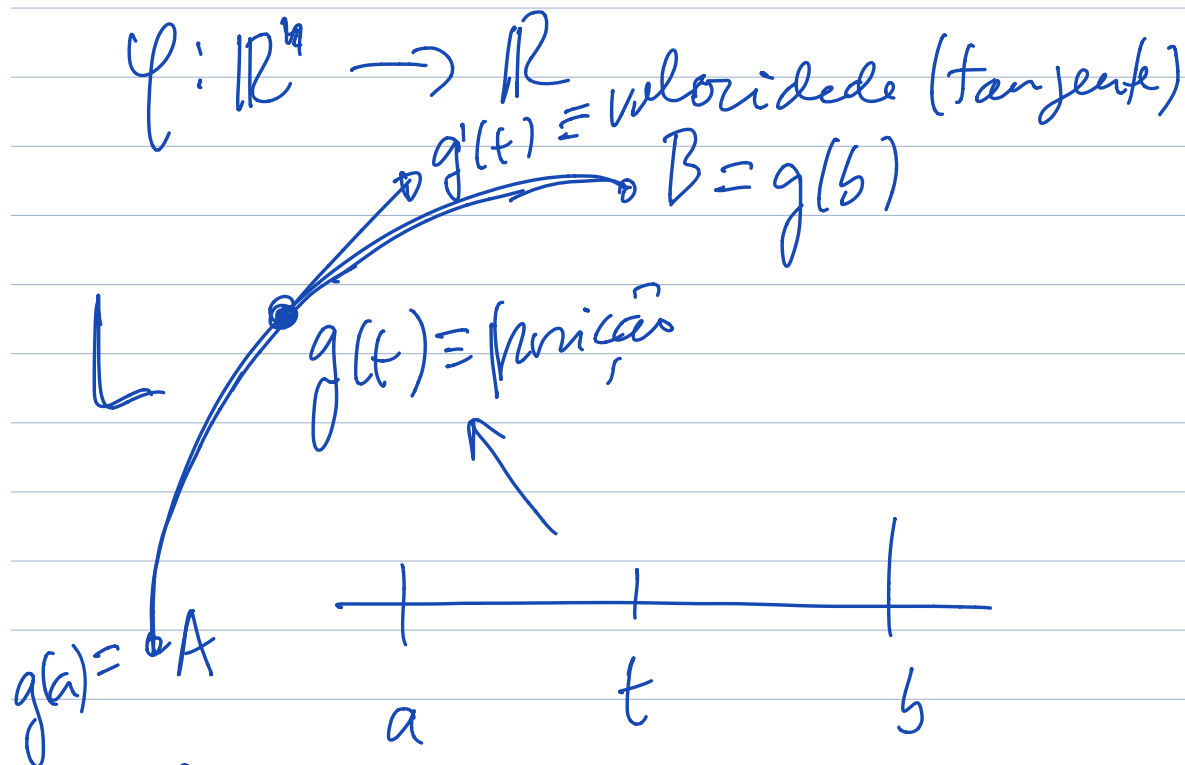 φ: ℝⁿ → ℝ
g'(t) ≡ velocidade (tangente)
B = g(b)
L
g(t) ≡ posição
g(a) = A
a t b